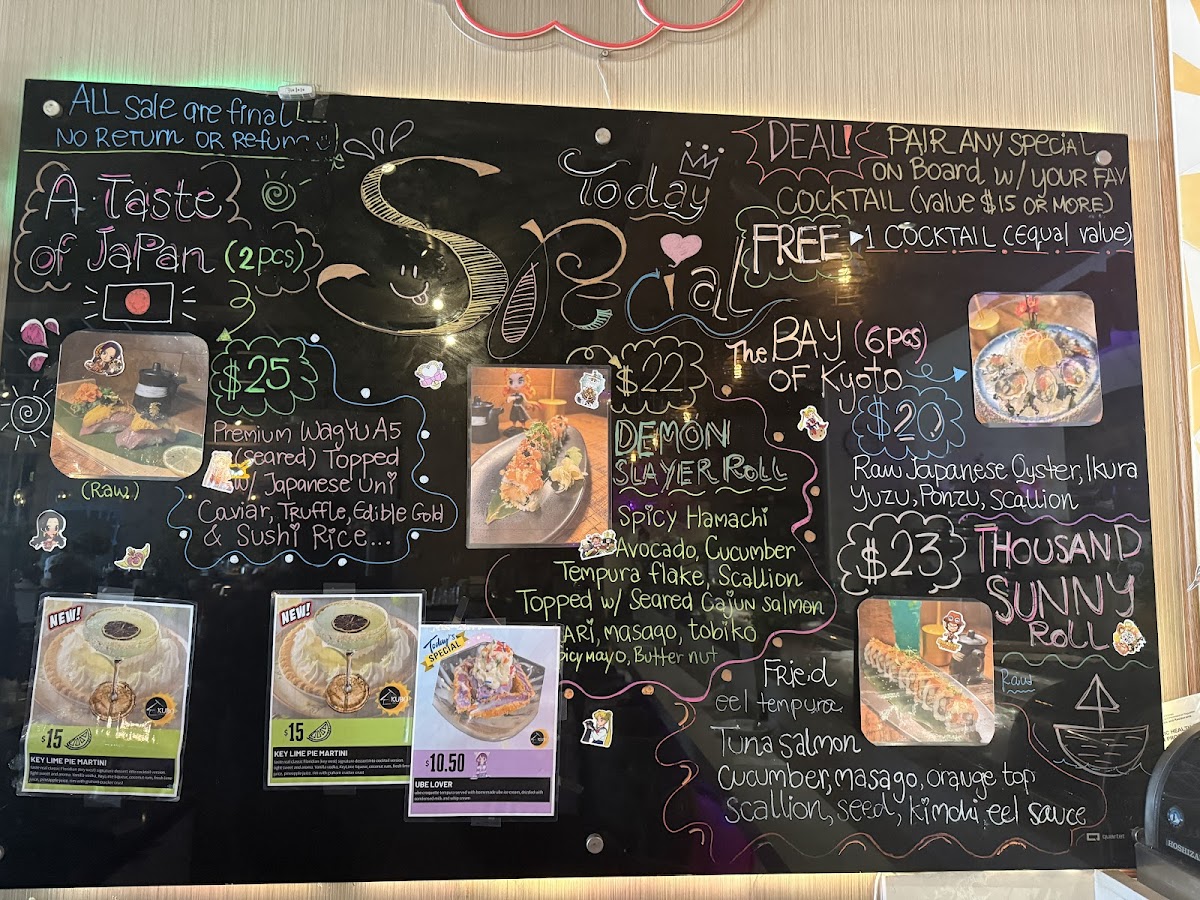 ALL sale are final
NO RETURN OR REFUND
A Taste
of JaPaN (2pcs)
$25
Premium WagYU A5
(seared) Topped
w/ Japanese Uni
Caviar, Truffle, Edible Gold
& Sushi Rice...
(Raw)
Today
Special
DEAL! PAIR ANY SPECIAL
ON Board w/ YOUR FAV
COCKTAIL (value $15 OR MORE)
FREE 1 COCKTAIL (Equal value)
$22
DEMON
SLAYER ROLL
Spicy Hamachi
Avocado, Cucumber
Tempura flake, Scallion
Topped w/ Seared Cajun salmon
masago, tobiko
Mayo, Butter nut
The BAY (6pcs)
OF Kyoto
$20
Raw Japanese Oyster, Ikura
Yuzu, Ponzu, Scallion
$23
THOUSAND
SUNNY
ROLL
Fried
eel tempura
Tuna salmon
Cucumber, masago, orange, top
scallion, seed, kimchi, eel sauce
NEW!
KUBO
$15
KEY LIME PIE MARTINI
NEW!
KUBO
$15
KEY LIME PIE MARTINI
Today's
SPECIAL
$10.50
UBE LOVER
quartet
HOSHIZA